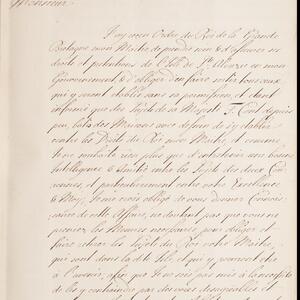 Monsieur
J'ay recu Ordre du Roi de la Grande
Bretagne mon Maitre de prendre soin & d'assurer ses
droits et pretentions de l'Isle de Ste Alouzie en mon
Gouvernement & d'obliger d'en faire sortir tous ceux
qui y seront établis sans sa permission, et etant
informé que des Sujets de sa Majesté T. C. ont depuis
peu, fait des
contre les Droits du Roi mon Maitre, et comme
Je ne souhaite rien plus que d'entretenir une bonne
Intelligence & Amitié entre les Sujets des deux Cou-
ronnes, et particulierement entre votre Excellence
& Moy, Je me crois obligé de vous donner Connois-
sance de cette Affaire, ne doutant pas que vous ne
preniez les Mesures necessaires pour obliger et
faire retirer les Sujets du Roi votre Maitre,
qui sont dans la dite Isle, et qui y voudront etre
à l'avenir, afin que Je ne sois pas mis à la necessité
de les y contraindre par des voies desagreables et